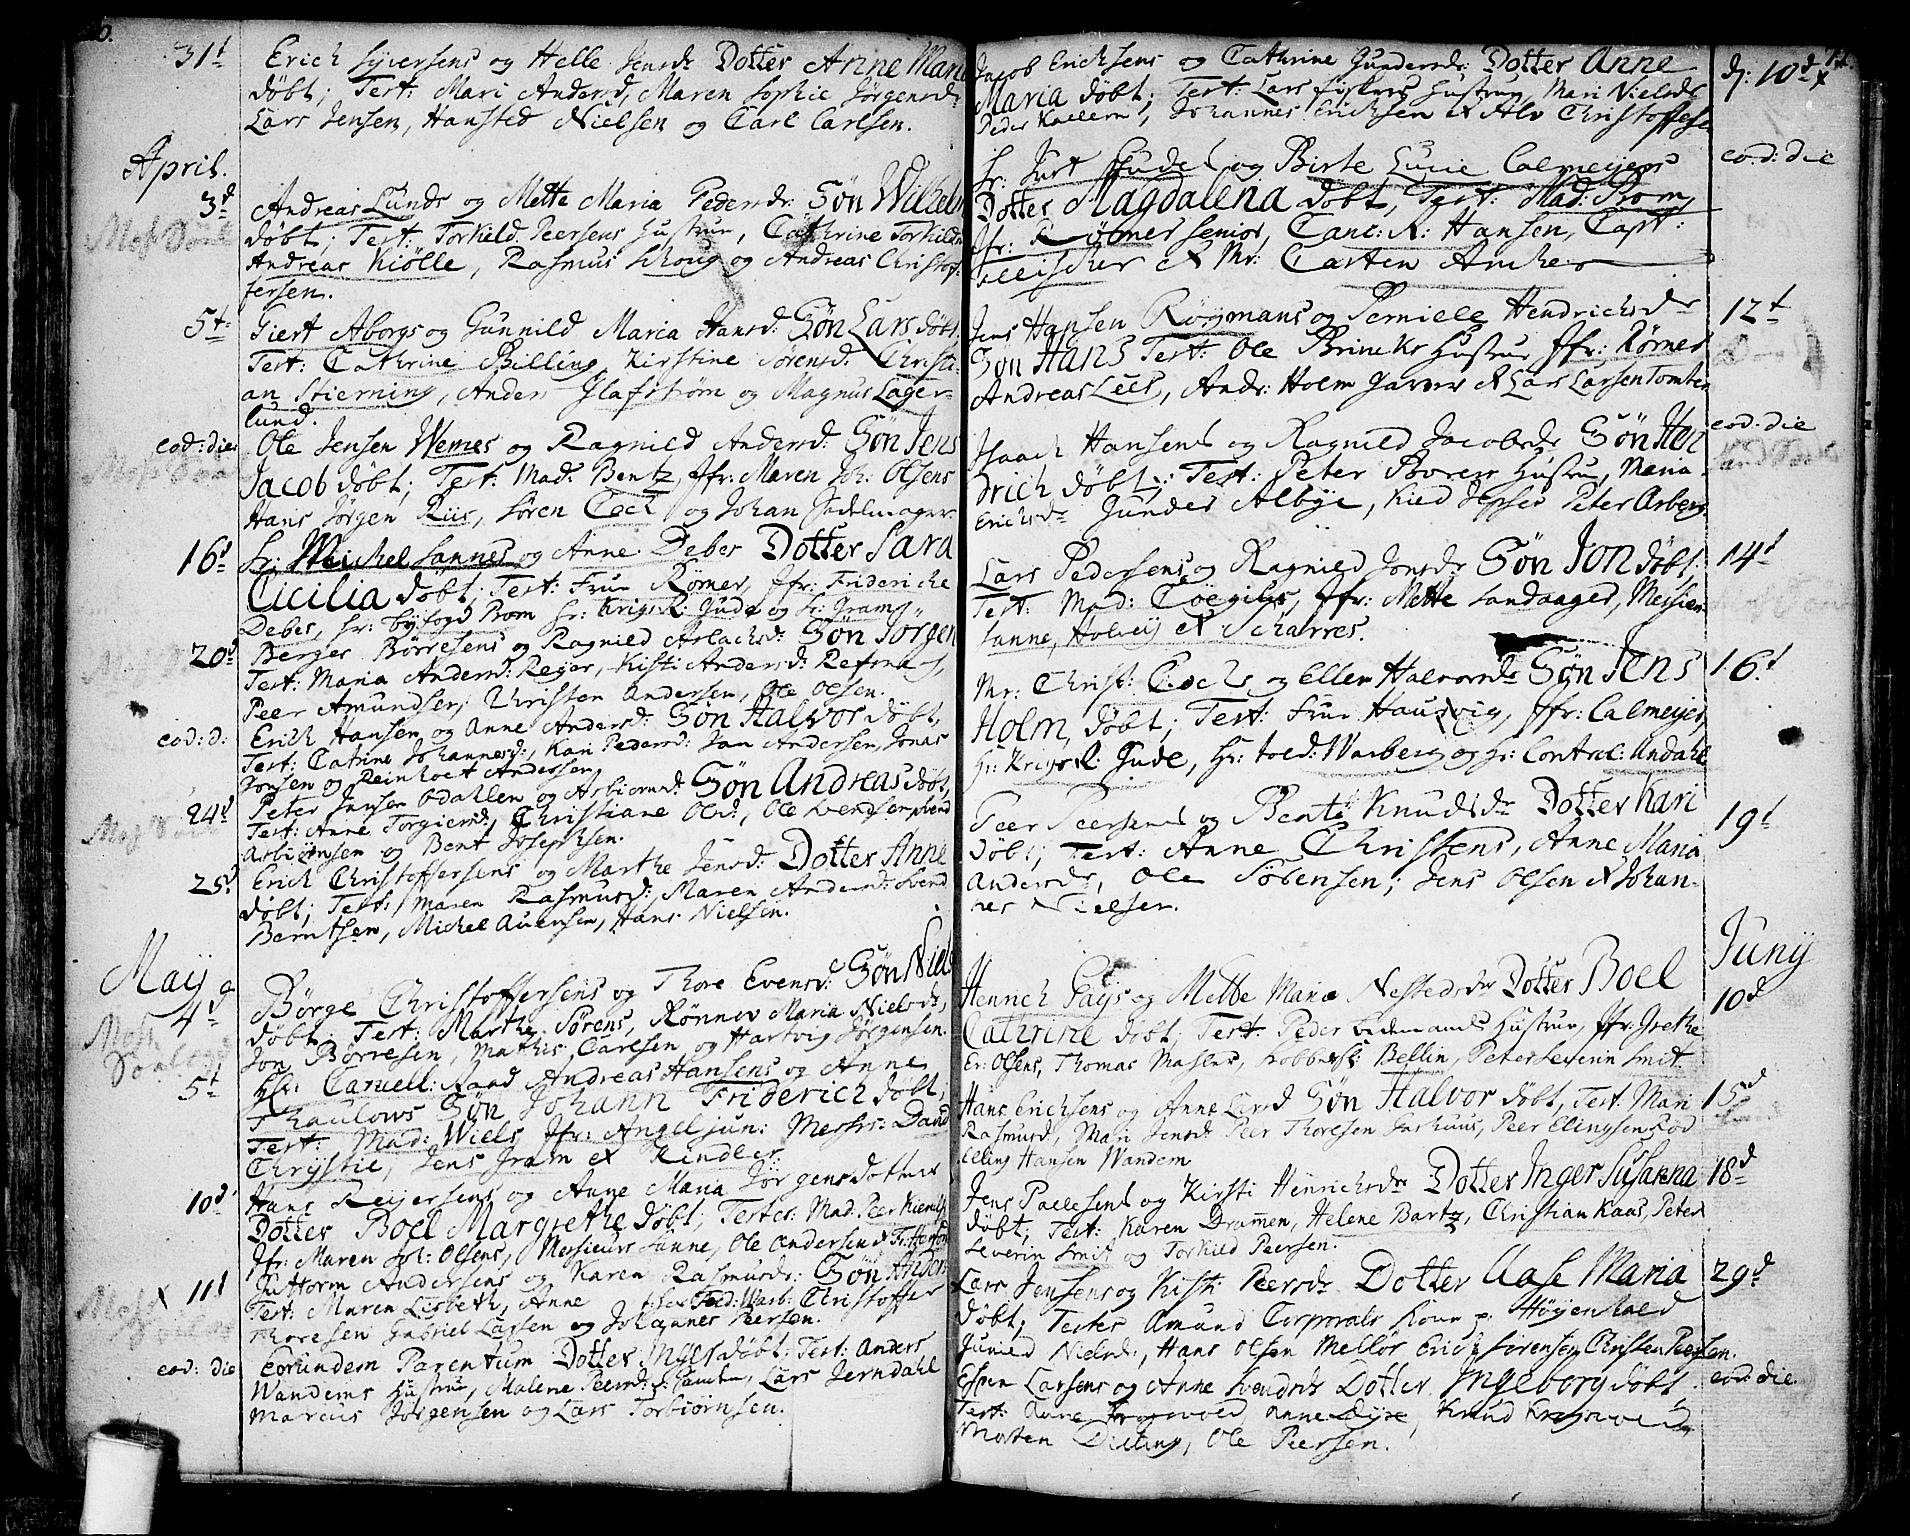 31t Erich Syversens og Helle Jensdr Dotter Anne Marie
döbt; Test: Mari Andersd, Maren Sophie Jörgensd:
Lars Jensen, Hansted Nielsen og Carl Carlsen.
April.
3d Andreas Lunds og Mette Maria Pedersdr: Sön Wilhelm
döbt; Test: Torkild Peersens Hustrue, Cathrine Torkilds
Andreas Kiölle, Rasmus Schoug og Andreas Christof-
fersen.
5t Giert Aborgs og Gunnild Maria Hansd: Sön Lars döbt,
Test: Cathrine Billing, Kirstine Sörensd: Christi-
an Stierning, Anders Glafström og Magnus Lager-
lund.
eod: die Ole Jensen Wemes og Ragnild Andersd: Sön Jens
Jacob döbt; Test: Mad: Bentz, Jfr: Maren Joh: Olsens
Hans Jörgen Riis, Sören Cock og Johan Sadelmager
16d Hr: Michel Sannes og Anne Debes Dotter Sara
Cicilia döbt; Test: Frue Römer, Jfr: Frideriche
Debes, Hr: byfogd Prom Hr: Krigs R: Gude og Hr: Gram,
20d Berger Börresens og Ragnild Aslachsd: Sön Jörgen
Test: Maria Andersd: Reyer, Kisti Andersd: Refsnæs,
Peer Amundsen, Christen Andersen, Ole Olsen.
eod: d: Erich Hansen og Anne Andersd: Sön Halvor döbt,
Test: Catrine Johannesd:, Kari Pedersd: Jan Andersen, Jonas
Jonsen og Reinholt Anderssen.
24d Peter Jansen Odahlen og Asbiornsd: Sön Andreas döbt,
Test: Anne Torgiersd:, Christiane Olsd:, Ole Svendsen, Svend
Asbiörnsen og Bent Josephsen.
25d Erich Christoffersens og Marthe Jensd: Dotter Anne
döbt; Test: Maren Rasmusd: Maren Andersd: Svend
Berntsen, Michel Auensen, Hans Nielsen.
May
4d Börge Christoffersens og Thore Evensd: Sön Niels
döbt; Test: Marthe Sörens, Rönnov Maria Nielsdr,
Jon Börresen, Mathis Carlsen og Hartvig Jörgensen.
5t Hr: Cancell: Raad Andreas Hansens og Anne
Thaulows Sön Johann Friderich döbt;
Test: Mad: Wiels, Jfr: Angel jun: Messrs: David
Chrystie, Jens Gram et Kindler.
10d Hans Reyersens og Anne Maria Jörgensdotter
Dotter Boel Margrethe döbt; Testes: Mad: Peer
Jfr: Maren Joh: Olsens, Messieurs Sanne, Ole Andersen &
11t Guttorm Andersens og Karen Rasmusdr: Sön Anders
Test: Maren Lisbeth, Anne Christoffer
Thoresen Gabriel Larsen og Johannes Peersen.
eod: die Eorundem Parentum Dotter Inger döbt; Test: Anders
Wandems Hustrue, Malene Peersd: Lars Jerndahl
Marcus Jörgensen og Lars Torbiörnsen.
71.
Jacob Ericksens og Cathrine Gundersdr: Dotter Anne d: 10d
Maria döbt; Test: Lars Fiskers Hustrue, Mari Nielsdr
Peder Kaelem, Johannes Ericksen & Alv Christoffers
Hr: Jürt Gude og Birte Lucie Calmeyers eod: die
Dotter Magdalena döbt, Test: Mad: Prom,
Jfr: Römer senior, Canc: R: Hansen, Capt:
Fischer & Mr: Carten Ancher
Jens Hansen Röymans og Pernille Hendrichsdr 12t
Sön Hans Test: Ole Brincks Hustrue Jfr: Römer
Andreas Lees, Andr: Holm Garver & Lars Larsen Tomter
Isaach Hansens og Ragnild Jacobsdr Sön Hen eod: die
drich döbt; Test: Peter Borers Hustrue, Nena
Ericsdr Gunder Albye, Kield Jepsen Peter Asberg
Lars Pedersens og Ragnild Jonsdr Sön Jon döbt. 14d
Test: Mad: Coegilis, Jfr: Mette Landaaged, Messieurs
Sanne, Holvey & Scharres.
Mr: Christ: Cocks og Ellen Halvorsdr Sön Jens 16d
Holm, döbt; Test: Frue Hausvig, Jfr: Calmeyer,
Hr: Krigs R: Gude, Hr: Told: Warberg og Hr: Control: Andahl
Peer Peersens og Bente Knudsdr Dotter Kari 19d
döbt; Test: Anne Christens, Anne Maria
Andersdr, Ole Sörensen; Jens Olsen & Johan-
nes Nielsen.
Juny
Henrich Pays og Mette Maria Nestedsdr Dotter Boel 10d
Cathrine döbt; Test: Peder bedemands Hustrue, Jfr: Grethe
Er: Olsens, Thomas Masler, Bellin, Peter Severin Smit.
Hans Erichsens og Anne Larsd Sön Halvor döbt, Test: Mari 15d
Rasmusd, Mari Jensd: Peer Thoresen Peer Elingsen Rod
Elling Hansen Wandem
Jens Pallesens og Kirsti Henrichsdr Dotter Inger Susanna 18d
döbt, Test: Karen Drammen, Helene Bartz, Christian Kaas, Peter
Severin Smit og Torkild Peersen.
Lars Jensens og Kisti Peersdr Dotter Aase Maria 29d
döbt; Testes Amund Corporals Kone p. Höyenhald
Gunild Nielsdr:, Hans Olsen Mellös Erich Sörensen, Christen Peersen.
Espen Larsens og Anne Svendsdr Dotter Ingeborg döbt eod: die.
Test: Anne Kragsvold Anne Dyre, Knud Kragsvold
Morten Dilling, Ole Peersen.